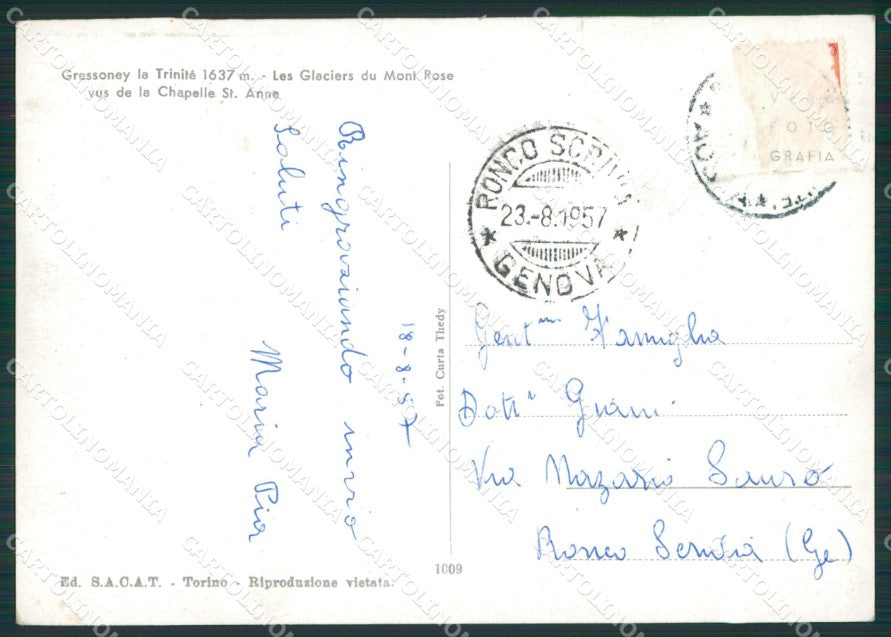 Gressoney la Trinité 1637 m. - Les Glaciers du Mont Rose
vus de la Chapelle St. Anne
18-8-57
Ringraziando invio
Saluti
Maria Pia
Fot. Curta Thedy
1009
Ed. S.A.C.A.T. - Torino - Riproduzione vietata.
VERA
FOTO
GRAFIA
RONCO SCRIVIA
23.-8.1957
GENOVA
Gent.me Famiglia
Dott.
Via Nazario Sauro
Ronco Scrivia (Ge)
CARTOLINOMANIA